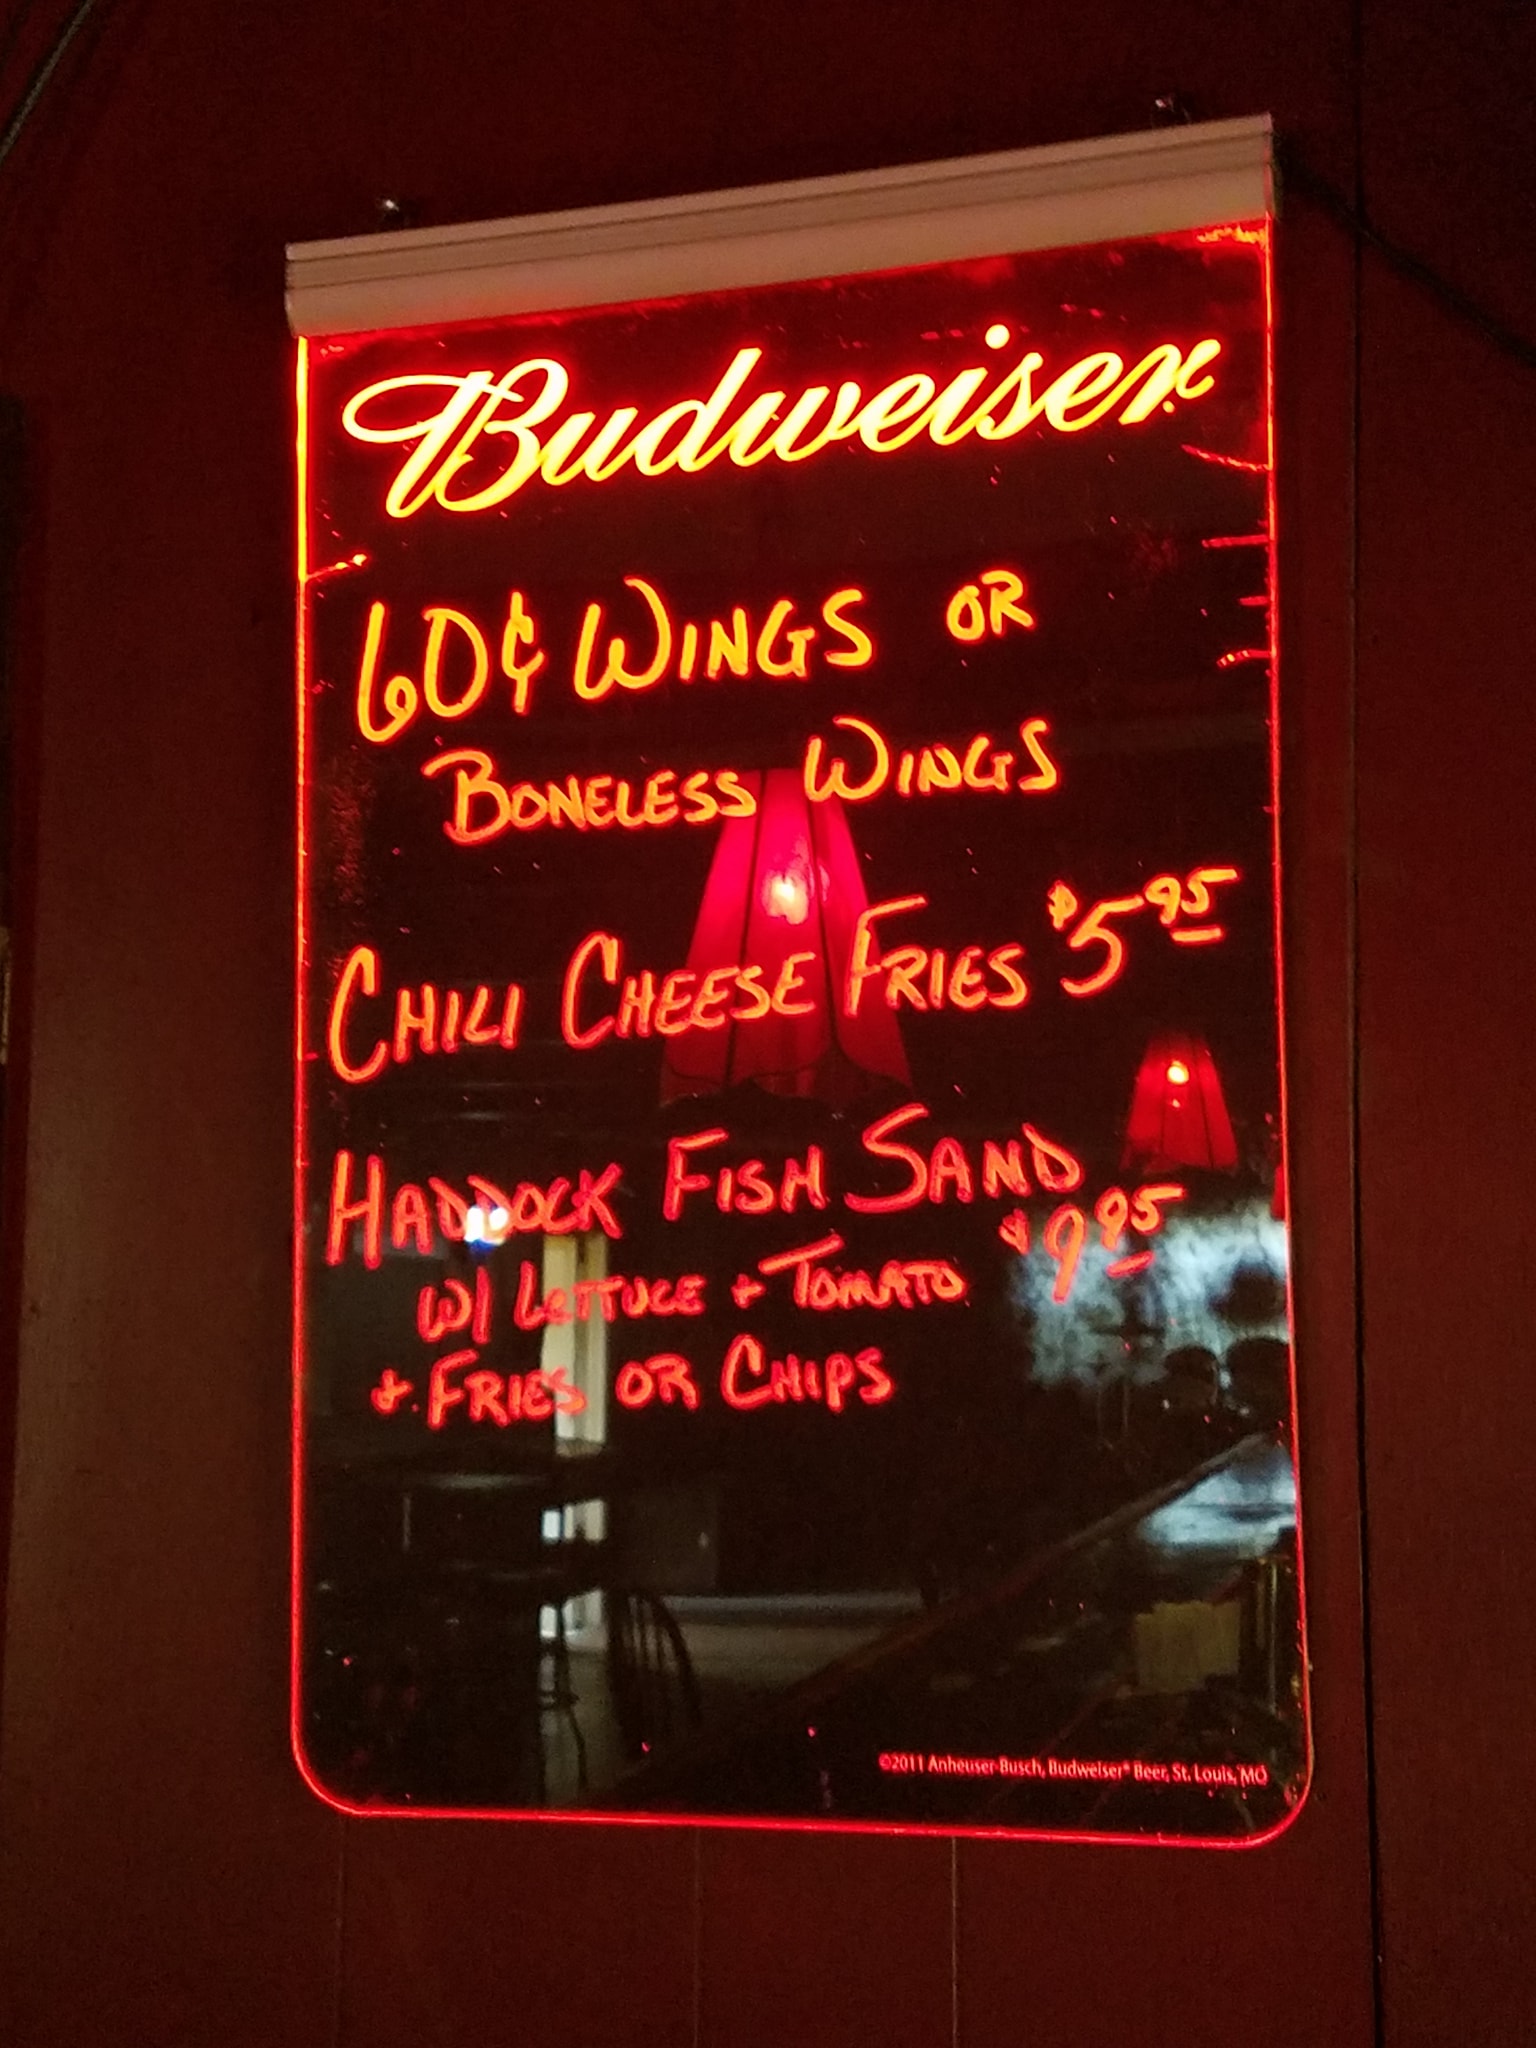 Budweiser
60¢ WINGS OR
BONELESS WINGS
CHILI CHEESE FRIES $5.95
HADDOCK FISH SAND
$9.95
W/ LETTUCE + TOMATO
+ FRIES OR CHIPS
©2011 Anheuser-Busch, Budweiser® Beer, St. Louis, MO